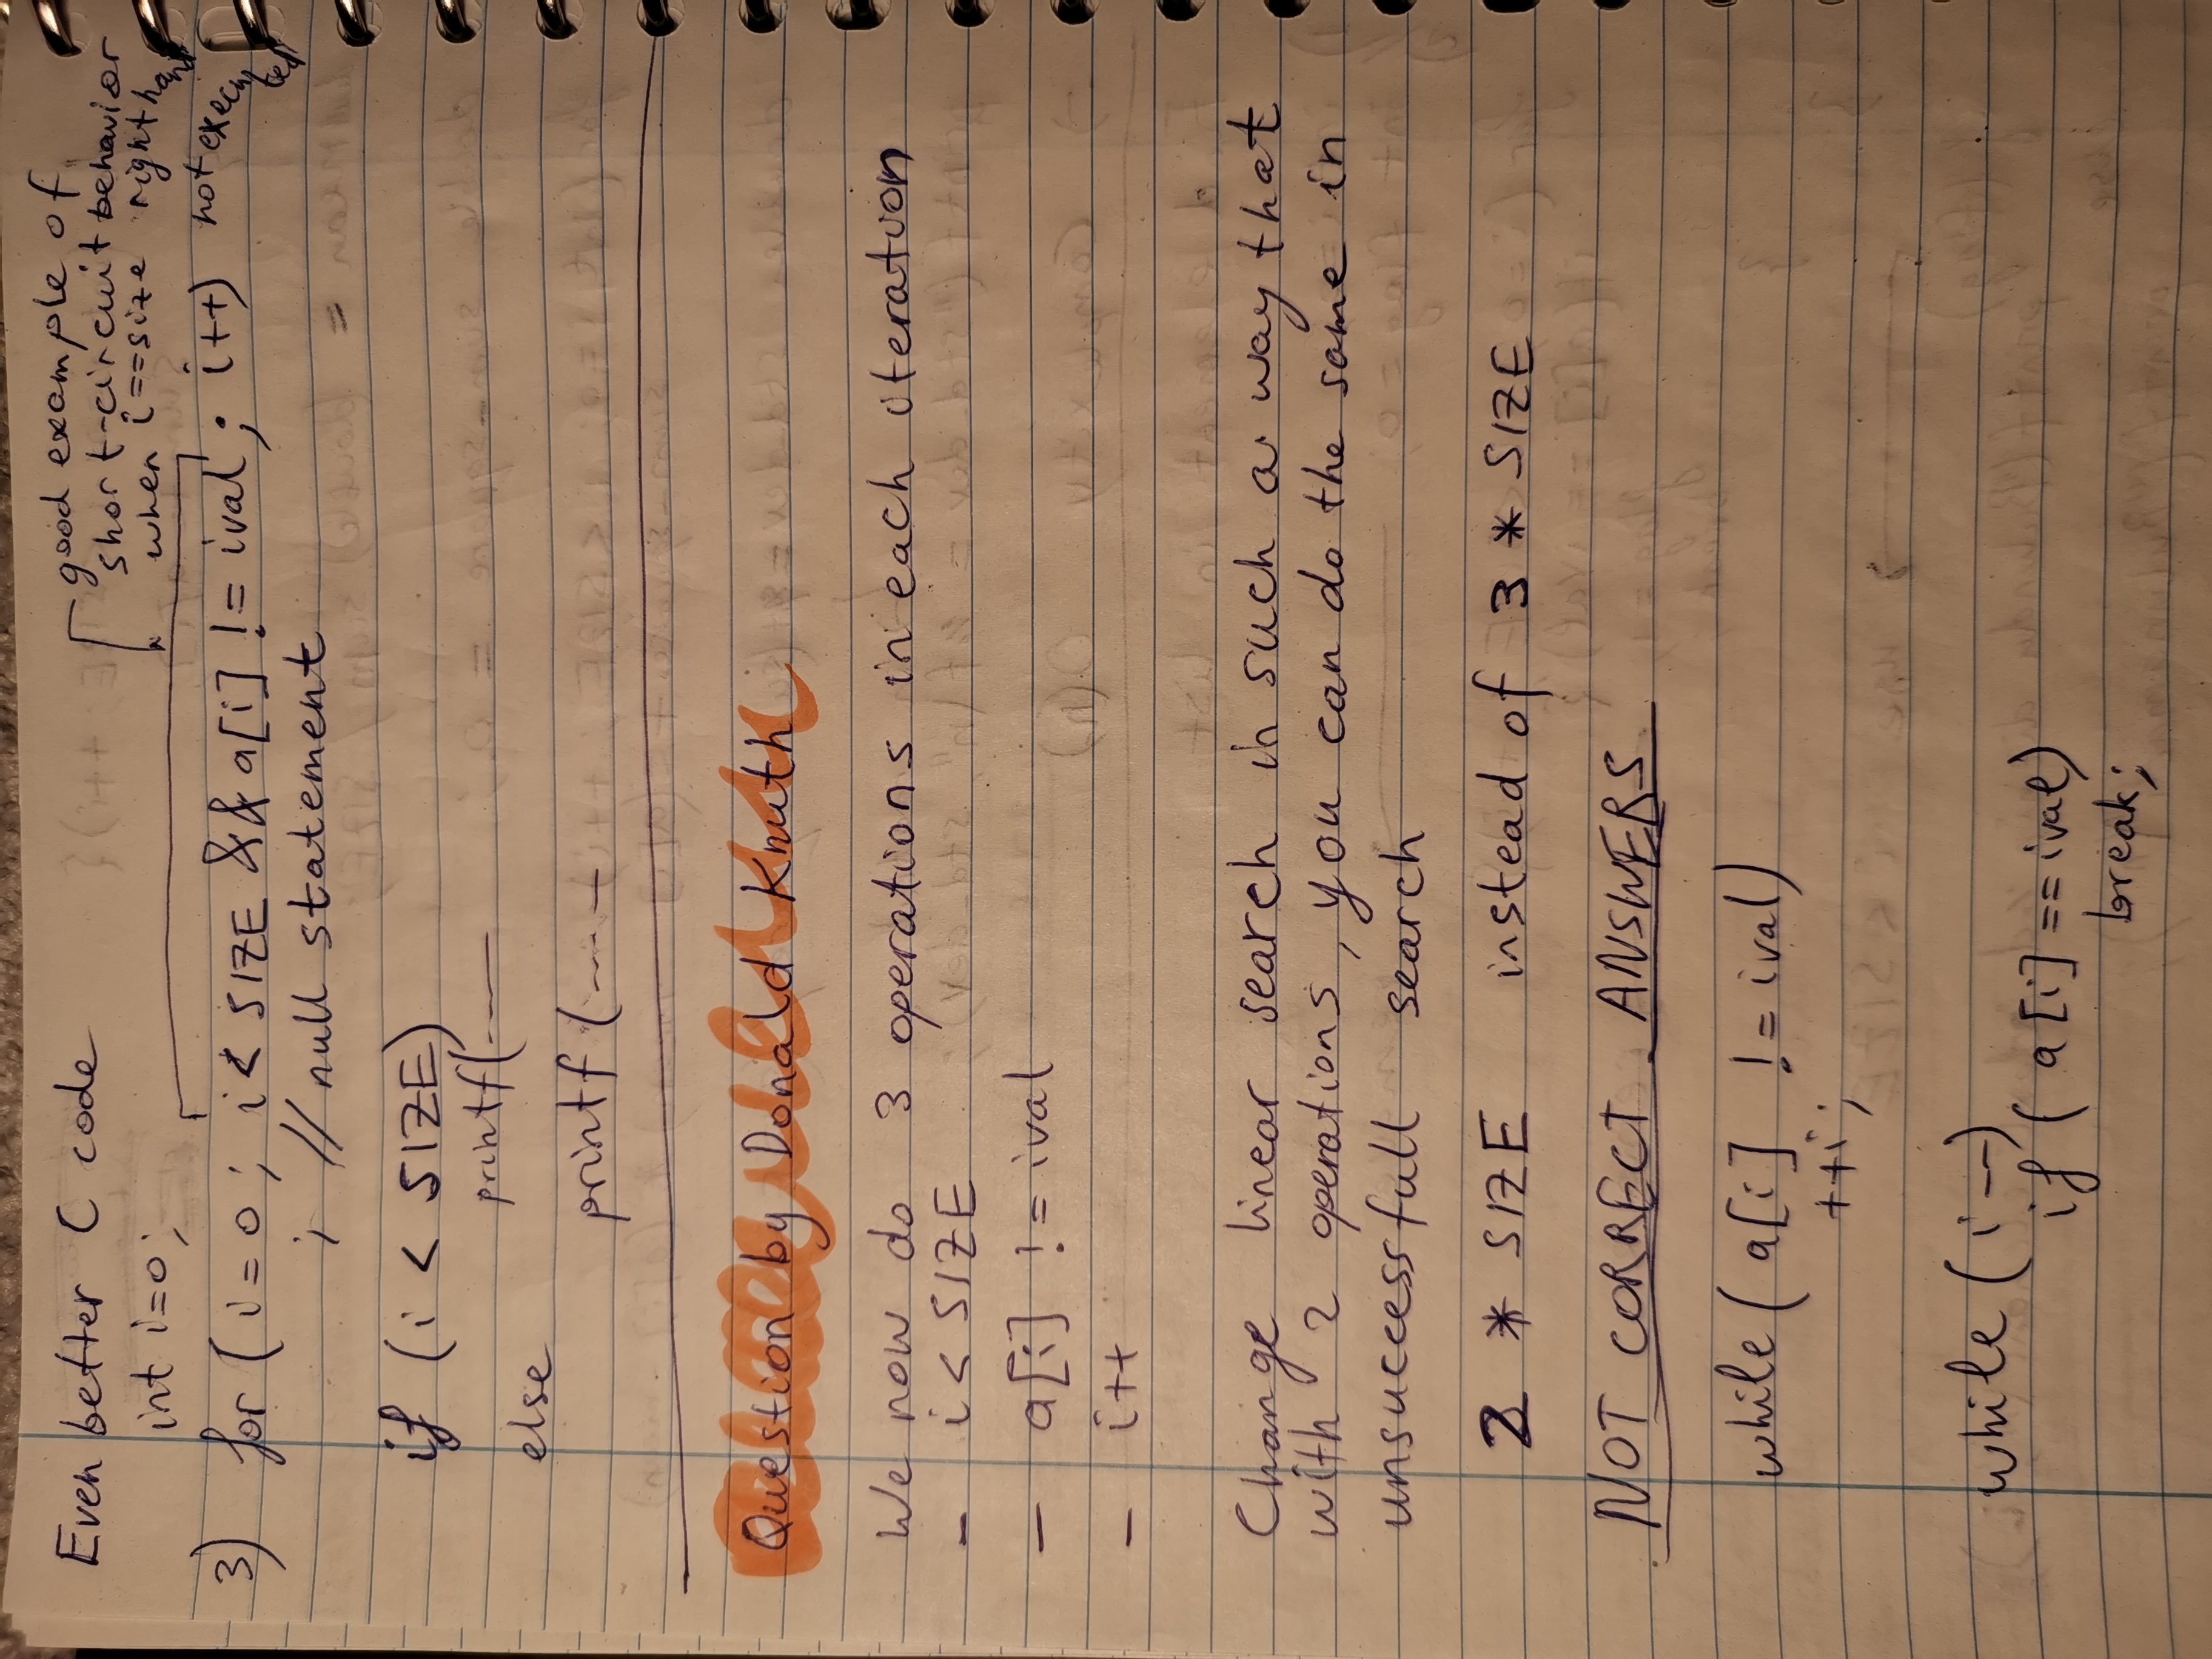 Even better C code
good example of
short-circuit behavior
when i==size right hand
not executed
int i=0;
3) for ( i=0; i< SIZE && a[i] != ival; i++)
; // null statement
if (i < SIZE)
printf(----
else
printf (----
Question by Donald Knuth
We now do 3 operations in each iteration
- i< SIZE
- a[i] != ival
- i++
Change linear search in such a way that
with 2 operations, you can do the same in
unsuccessfull search
2 * SIZE instead of 3 * SIZE
NOT CORRECT ANSWERS
while ( a[i] != ival)
++i;
while ( i--)
if ( a[i] == ival)
break;